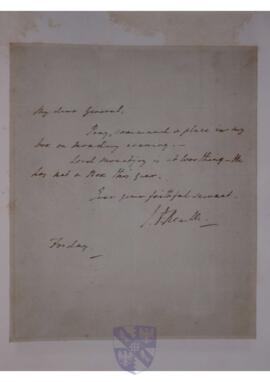 My dear General,
Pray, command a place in my
box on Monday evening. —
Lord is at Worthing — He
has not a Box this year.
Ever your faithful servant.
Friday